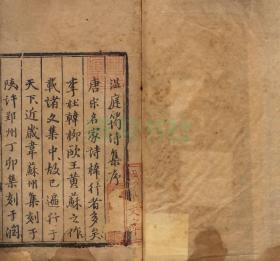 温庭筠诗集序
唐宋名家诗梓行者多矣
李杜韓柳歐王黄蘇之作
載諸文集中故已遍行于
天下近歲韋蘇州集刻于
陝許郢州丁卯集刻于潤